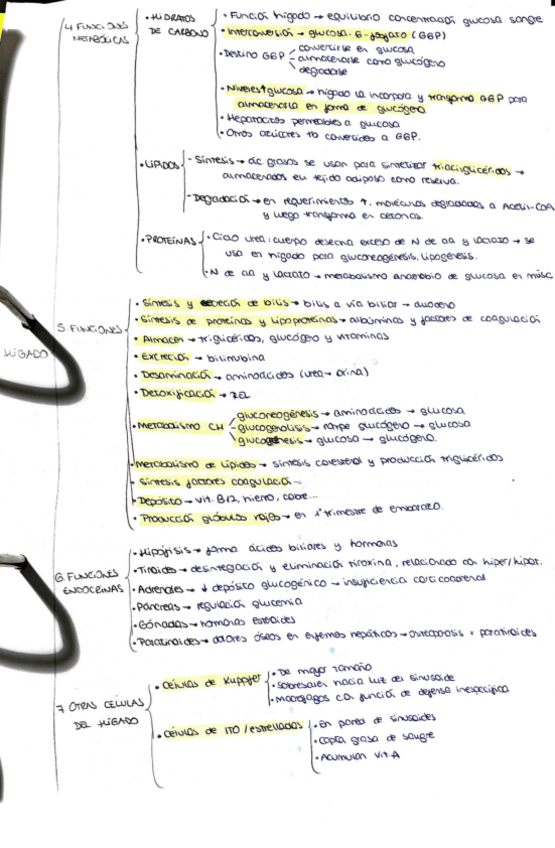 HÍGADO
4. FUNCIONES METABÓLICAS
• HIDRATOS DE CARBONO
• Función hígado → equilibrio concentración glucosa sangre
• Interconversión → glucosa-6-fosfato (G6P)
• Destino G6P
convertirse en glucosa
almacenarse como glucógeno
degradarse
• Niveles ↑ glucosa → hígado la incorpora y transforma G6P para
almacenarla en forma de glucógeno.
• Hepatocitos permeables a glucosa
• Otros azúcares tb convertidos a G6P.
• LÍPIDOS
- Síntesis → ác. grasos se usan para sintetizar triacilglicéridos →
almacenados en tejido adiposo como reserva.
- Degradación → en requerimiento ↑, moléculas degradadas a Acetil-COA
y luego transforma en cetonas.
• PROTEÍNAS
• Ciclo urea: cuerpo desecha exceso de N de aa y lactato → se
usa en hígado para gluconeogénesis, lipogénesis.
• N de aa y lactato → metabolismo anaerobio de glucosa en músc
5. FUNCIONES
• Síntesis y secreción de bilis → bilis a vía biliar → duodeno
• Síntesis de proteínas y lipoproteínas → albúminas y factores de coagulación
• Almacén → triglicéridos, glucógeno y vitaminas
• Excreción → bilirrubina
• Desaminación → aminoácidos (urea → orina)
• Detoxificación → REL
• Metabolismo CH
gluconeogénesis → aminoácidos → glucosa
glucogenolisis → rompe glucógeno → glucosa
glucogénesis → glucosa → glucógeno.
• Metabolismo de Lípidos → síntesis colesterol y producción triglicéridos
• Síntesis factores coagulación
• Depósito → vit. B12, hierro, cobre...
• Producción glóbulos rojos → en 1º trimestre de embarazo.
6. FUNCIONES ENDOCRINAS
• Hipófisis → forma ácidos biliares y hormonas
• Tiroides → desintegración y eliminación tiroxina, relacionado con hiper/hipot.
• Adrenales → ↓ depósito glucogénico → insuficiencia corticoadrenal
• Páncreas → regulación glucemia
• Gónadas → hormonas esteroides
• Paratiroides → dolores óseos en enfermos hepáticos → osteoporosis x paratiroides
7. OTRAS CÉLULAS DEL HÍGADO
• Células de Kupffer
• De mayor tamaño
• Sobresalen hacia luz del sinusoide
• Macrófagos con función de defensa inespecífica
• Células de ITO / estrelladas
• en pared de sinusoides
• Capta grasa de sangre
• Acumulan vit. A